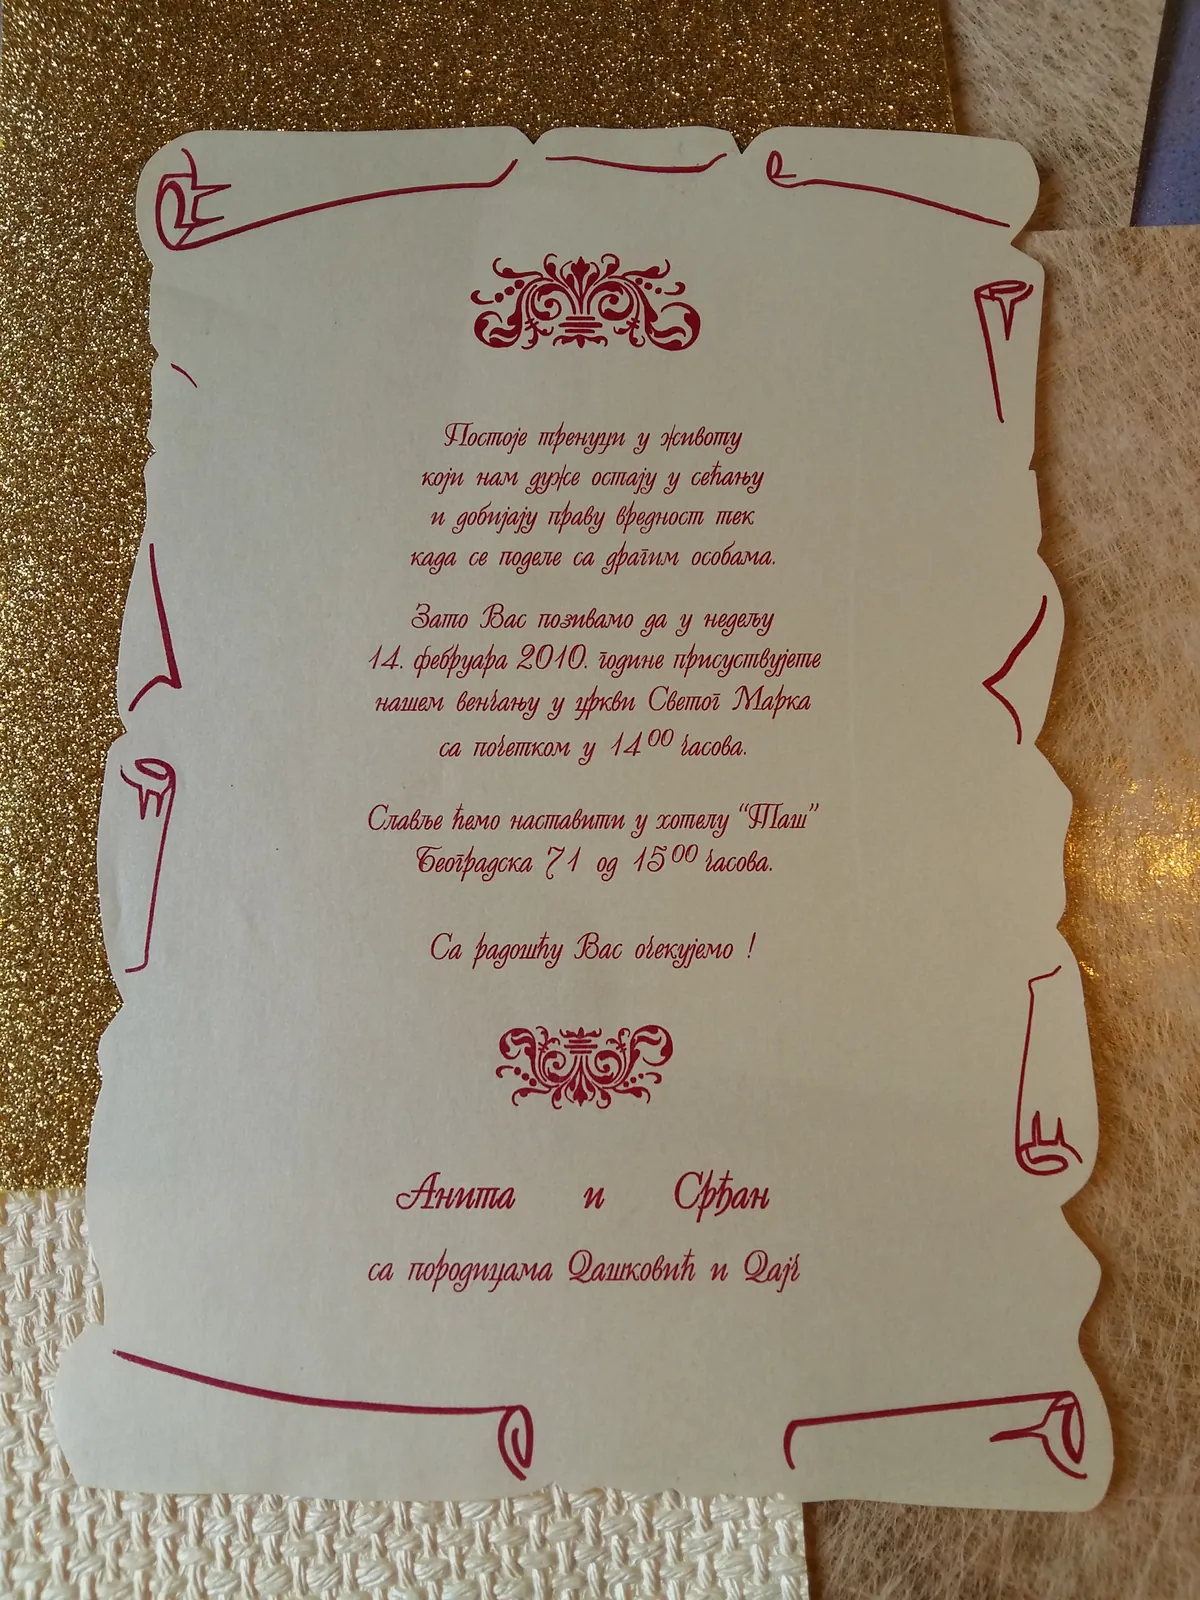 Постоје тренуци у животу
који нам дуже остају у сећању
и добијају праву вредност тек
када се поделе са драгим особама.
Зато Вас позивамо да у недељу
14. фебруара 2010. године присуствујете
нашем венчању у цркви Светог Марка
са почетком у 14⁰⁰ часова.
Славље ћемо наставити у хотелу “Таш”
Београдска 71 од 15⁰⁰ часова.
Са радошћу Вас очекујемо !
Анита и Срђан
са породицама Дашковић и Дајч